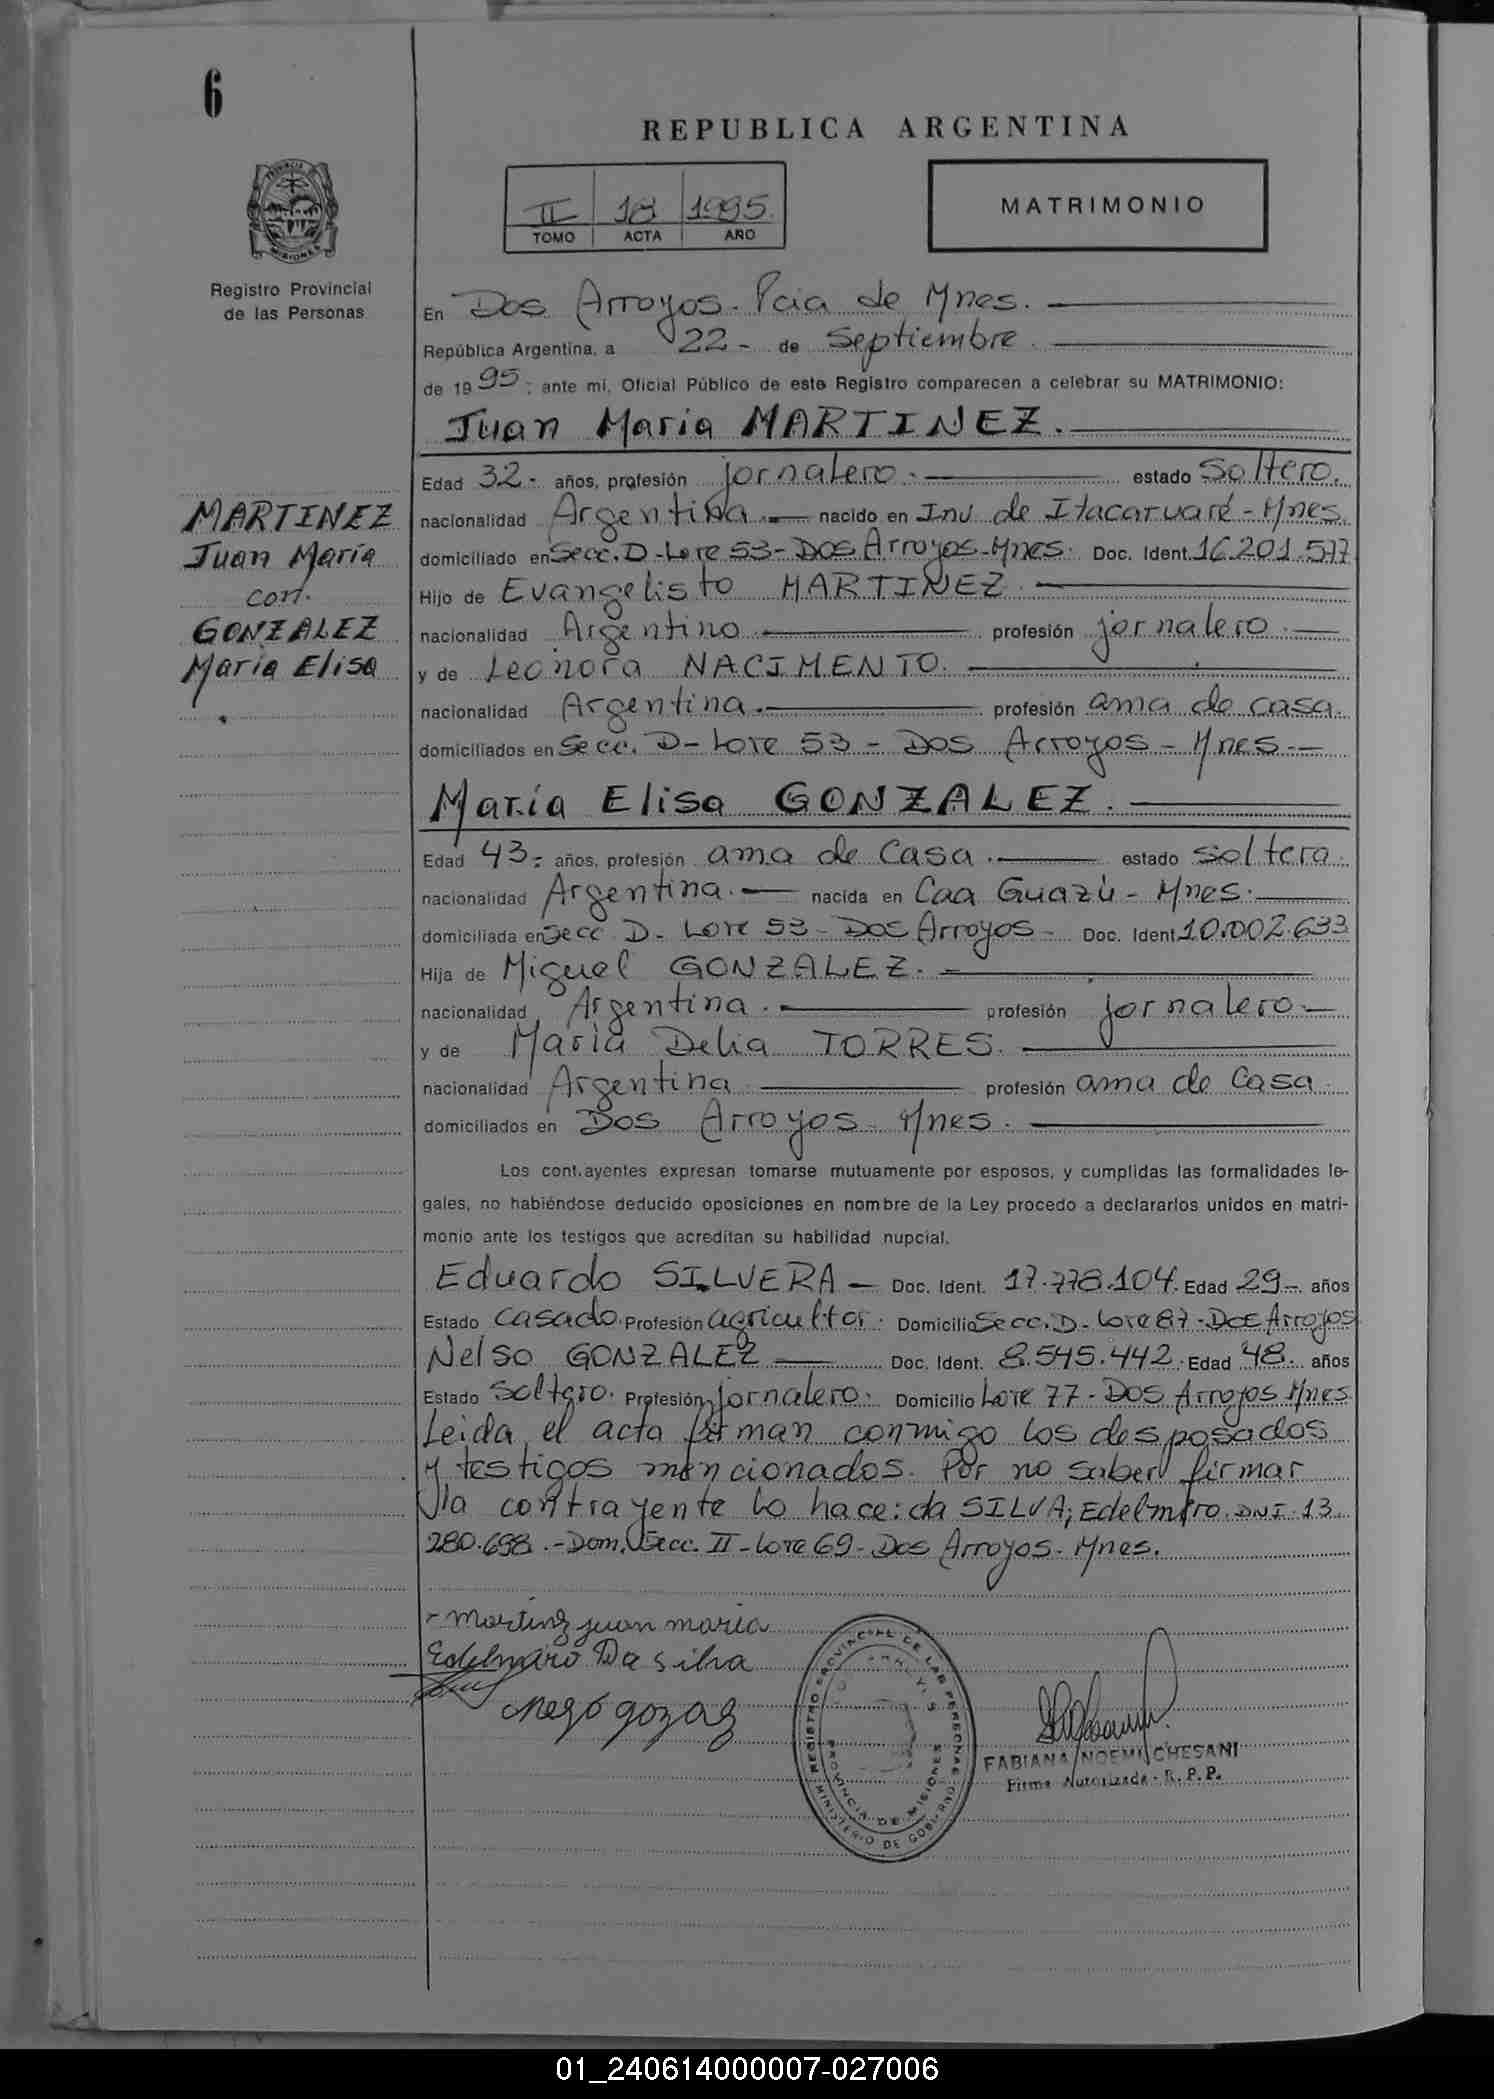 6
REPUBLICA ARGENTINA
II 18 1995
TOMO ACTA AÑO
MATRIMONIO
PROVINCIA
MISIONES
Registro Provincial
de las Personas
En Dos Arroyos - Pcia de Mnes.
República Argentina, a 22 - de Septiembre
de 1995; ante mí, Oficial Público de este Registro comparecen a celebrar su MATRIMONIO:
Juan Maria MARTINEZ.
Edad 32 - años, profesión jornalero. estado Soltero.
nacionalidad Argentina. nacido en Inv. de Itacaruaré - Mnes.
domiciliado en Secc. D - Lote 53 - Dos Arroyos - Mnes. Doc. Ident. 16.201.577
Hijo de Evangelisto MARTINEZ.
nacionalidad Argentino. profesión jornalero.
y de Leonora NACIMENTO.
nacionalidad Argentina. profesión ama de casa.
domiciliados en Secc. D - Lote 53 - Dos Arroyos - Mnes.
MARTINEZ
Juan María
con.
GONZALEZ
Maria Elisa
María Elisa GONZALEZ.
Edad 43 - años, profesión ama de Casa. estado soltera.
nacionalidad Argentina. nacida en Caa Guazú - Mnes.
domiciliada en Secc D - Lote 53 - Dos Arroyos - Doc. Ident. 10.002.633
Hija de Miguel GONZALEZ.
nacionalidad Argentina. profesión jornalero.
y de Maria Delia TORRES.
nacionalidad Argentina profesión ama de Casa.
domiciliados en Dos Arroyos - Mnes.
Los cont.ayentes expresan tomarse mutuamente por esposos, y cumplidas las formalidades le-
gales, no habiéndose deducido oposiciones en nombre de la Ley procedo a declararlos unidos en matri-
monio ante los testigos que acreditan su habilidad nupcial.
Eduardo SILVERA - Doc. Ident. 17.778.104. Edad 29 - años
Estado Casado. Profesión agricultor. Domicilio Secc. D - Lote 87 - Dos Arroyos
Nelso GONZALEZ Doc. Ident. 8.545.442. Edad 48. años
Estado Soltero. Profesión jornalero. Domicilio Lote 77 - Dos Arroyos Mnes
Leida el acta firman conmigo los desposados
y testigos mencionados. Por no saber firmar
la contrayente lo hace: da SILVA; Edelmiro. DNI. 13.
280.698. - Dom. Secc. II - Lote 69 - Dos Arroyos - Mnes.
martinz juan maria
Edelmiro Da silva
REGISTRO PROVINCIAL DE LAS PERSONAS
PROVINCIA DE MISIONES
MINISTERIO DE GOBIERNO
FABIANA NOEMI CHESANI
Firma Autorizada - R. P. P.
01_240614000007-027006